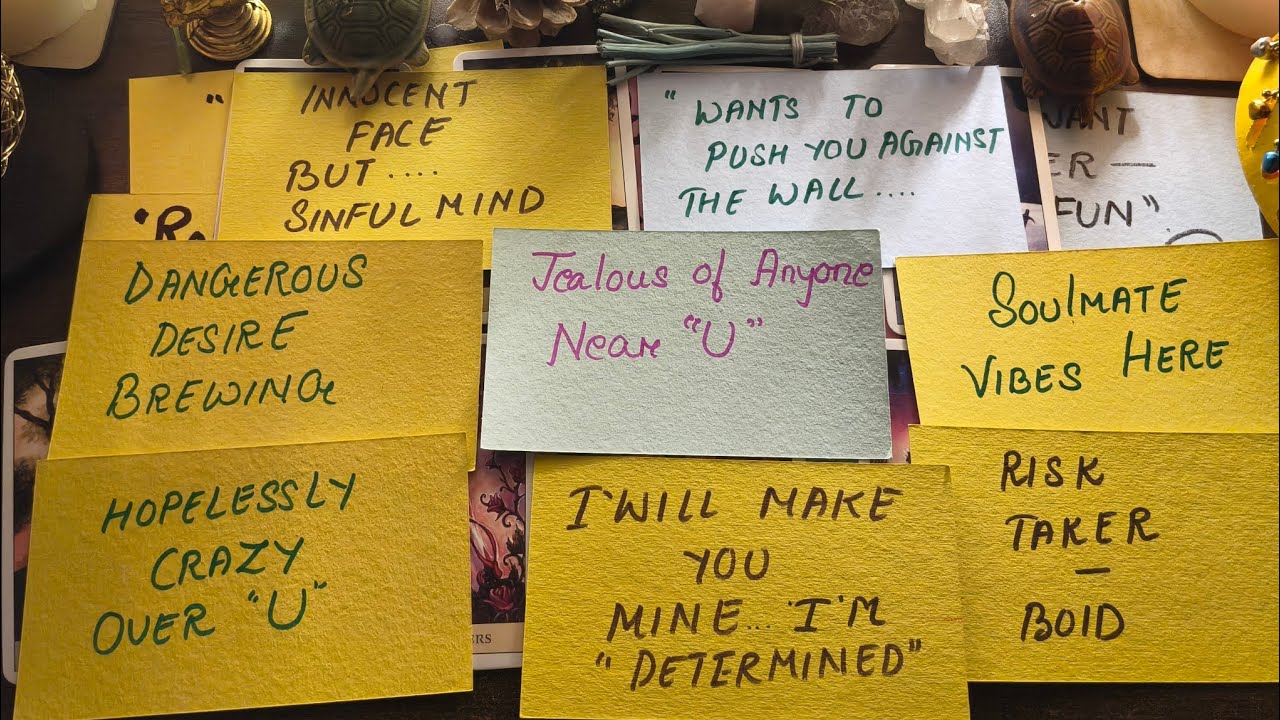 "
INNOCENT
FACE
BUT....
SINFUL MIND
"WANTS TO
PUSH YOU AGAINST
THE WALL....
WANT
ER —
FUN"
"R
DANGEROUS
DESIRE
BREWING
Jealous of Anyone
Near "U"
SOUlMATE
VIBES HERE
HOPELESSLY
CRAZY
OVER "U"
I'WILL MAKE
YOU
MINE... 'I'M
"DETERMINED"
RISK
TAKER
—
BOlD
ERS